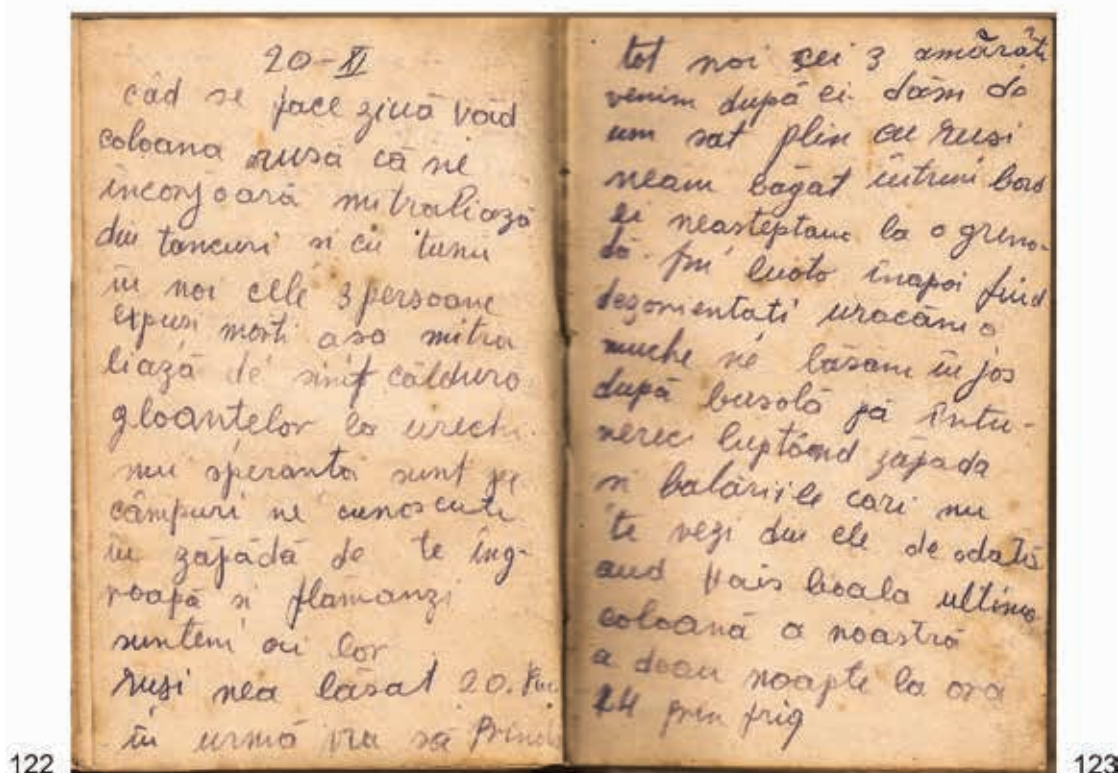 20-XI
când se face ziuă văd
coloana rusă că ne
inconjoară mitraliază
din tancuri si cu tunu
in noi cele 3 persoane
expusi morti asa mitra
liază de simt căldura
gloantelor la urechi.
nu sperantă sunt pe
câmpuri ne cunoscute
in zăpădă de te îng-
roapă si flămanzi
suntem ai lor
ruși nea lăsat 20. km
in urmă vra să prinde
122
tot noi cei 3 amărăti
venim după ei. dăm de
um sat plin cu ruși
neam băgat intruni bord
ei neasteptam la o grena-
dă. fui luoto inapoi fiind
dezorientati uracăm o
muche ne lăsam in jos
după busolă pă intu-
neric luptând zăpada
si balăriile cari nu
te vezi din ele de odată
aud boala ultima
coloană a noastră
a doau noapte la ora
24 prin frig
123